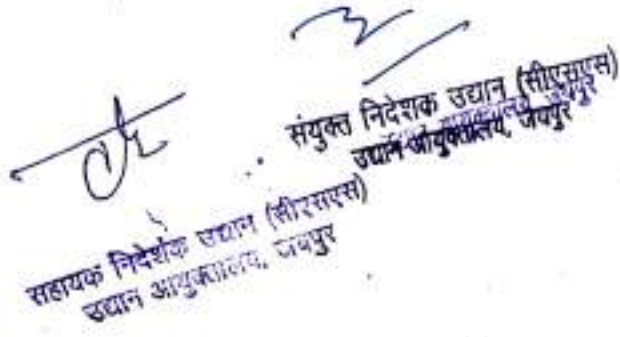 संयुक्त निदेशक उद्यान (सीएसएस)
उद्यान आयुक्तालय, जयपुर
सहायक निदेशक उद्यान (सीएसएस)
उद्यान आयुक्तालय, जयपुर